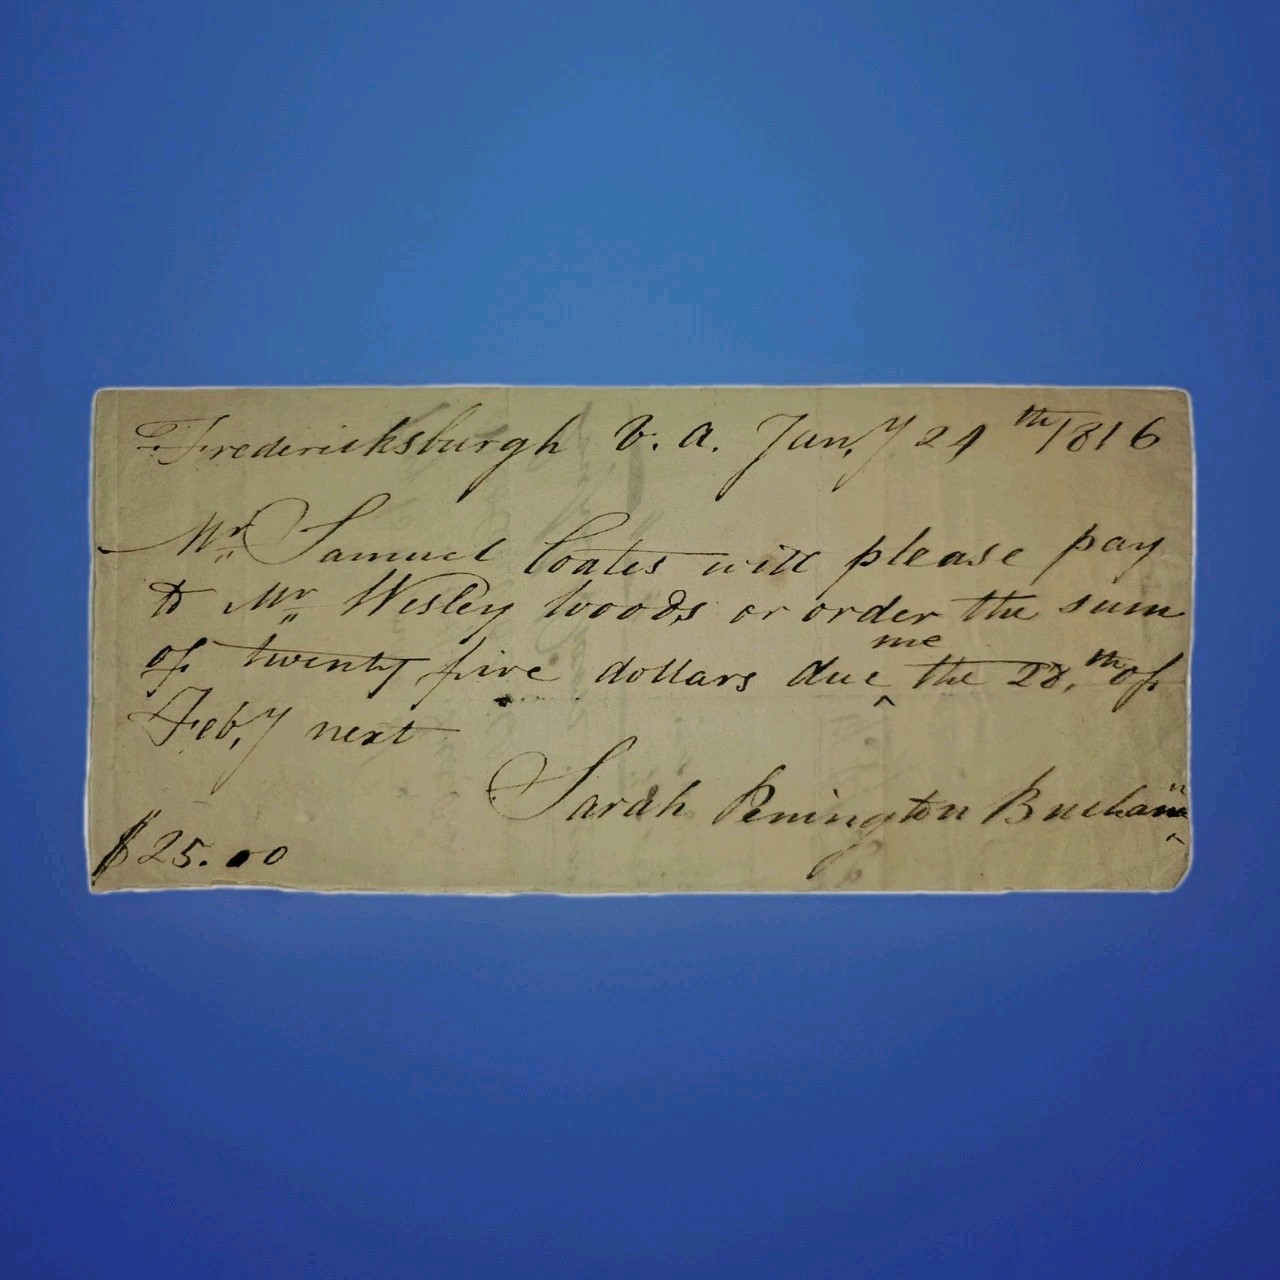 Fredericksburgh V. a. Jan,y 24th 1816
Mr Samuel Coates will please pay
to Mr Wesley Woods or order the sum
of twenty five dollars due ^me the 28,th of
Feb,y next
Sarah Penington Buchan
$25.00